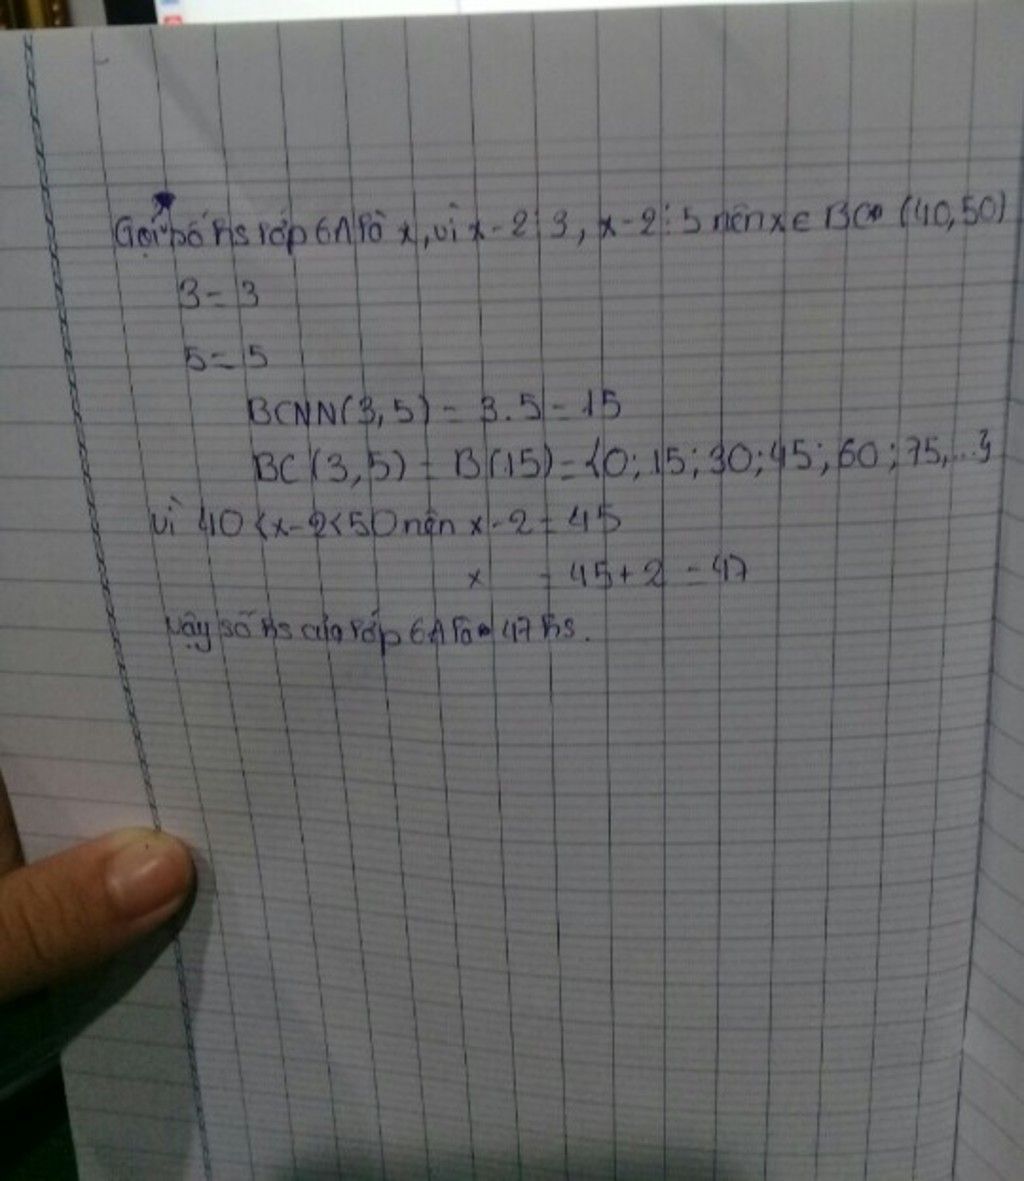 Gọi số hs lớp 6A là x, vì x - 2 ⋮ 3, x - 2 ⋮ 5 nên x ∈ BC (40, 50)
3 = 3
5 = 5
BCNN(3, 5) = 3.5 = 15
BC(3, 5) = B(15) = {0; 15; 30; 45; 60; 75,...}
vì 40 < x - 2 < 50 nên x - 2 = 45
x = 45 + 2 = 47
Vậy số hs của lớp 6A là 47 hs.